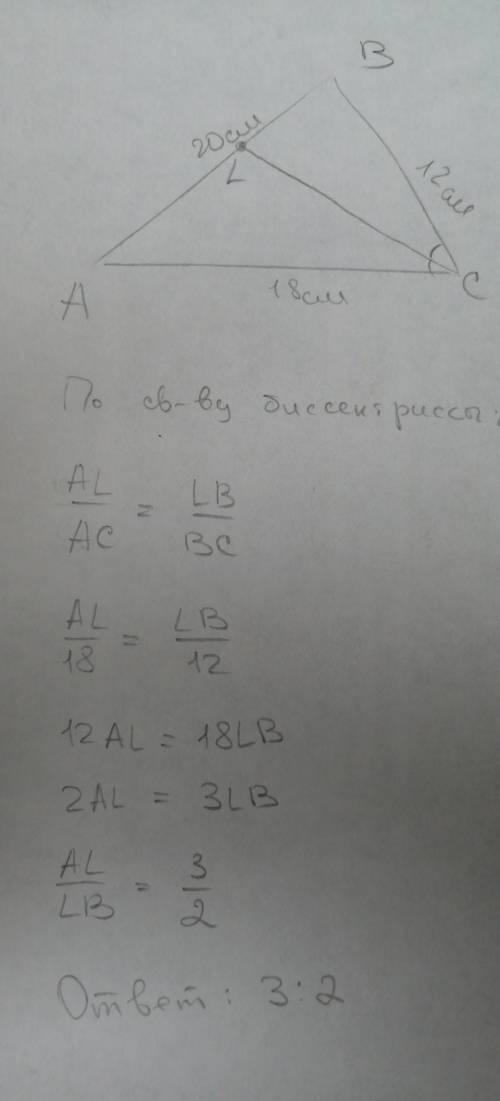 B
20см
L
12см
A
18см
C
По св-ву биссектриссы:
AL/AC = LB/BC
AL/18 = LB/12
12AL = 18LB
2AL = 3LB
AL/LB = 3/2
Ответ: 3:2